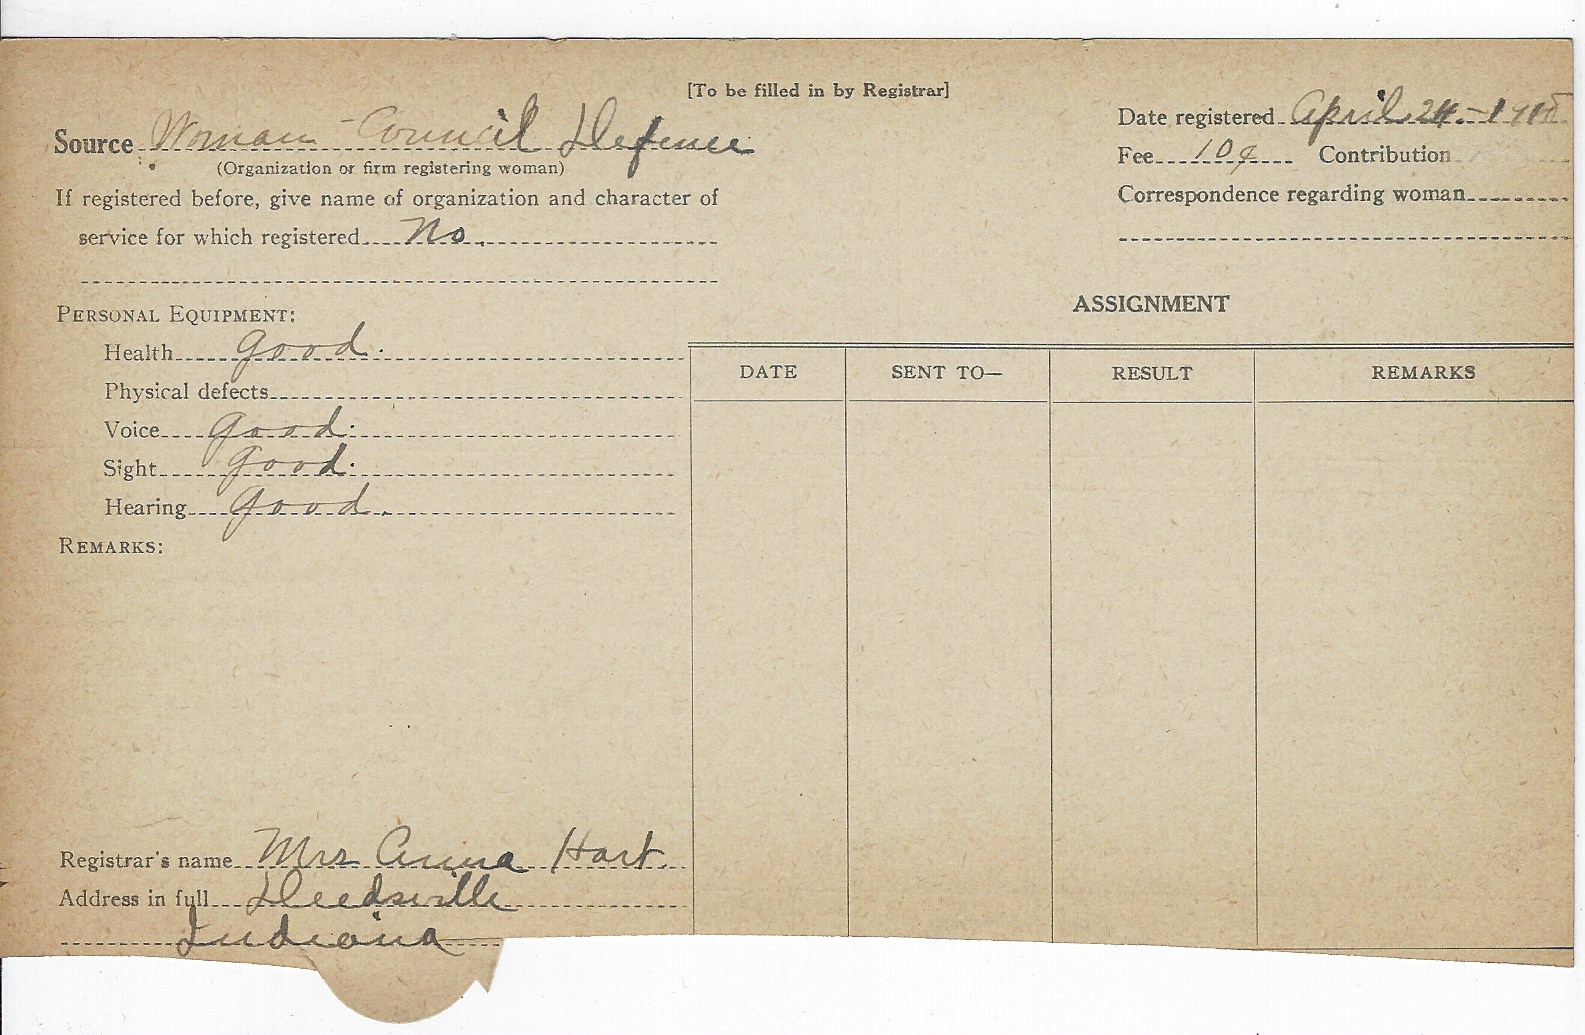 [To be filled in by Registrar]
Source Woman - Council Defence
(Organization or firm registering woman)
If registered before, give name of organization and character of
service for which registered No.
Date registered April 24 - 1918
Fee 10¢ Contribution
Correspondence regarding woman
PERSONAL EQUIPMENT:
Health good.
Physical defects
Voice good.
Sight good.
Hearing good.
REMARKS:
ASSIGNMENT
DATE SENT TO— RESULT REMARKS
Registrar's name Mrs Anna Hart
Address in full Deedsville
Indiana